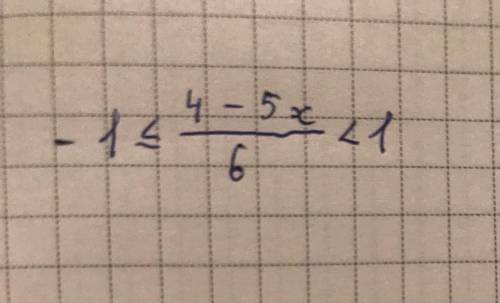 - 1 ≤ (4 - 5x)/6 < 1